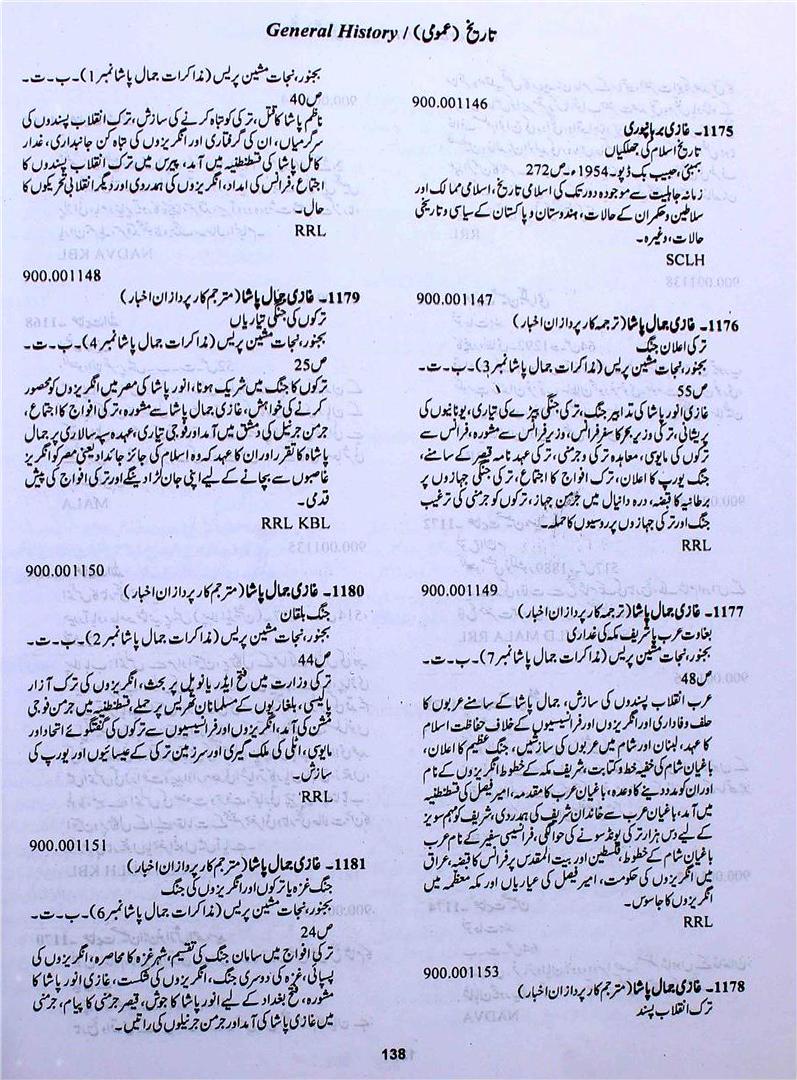 General History / تاریخ (عمومی)
900.001146
1175۔ غازی برہانپوری
تاریخ اسلام کی جھلکیاں
بمبئی، حبیب بک ڈپو۔1954ء۔ص272
زمانہ جاہلیت سے موجودہ دور تک کی اسلامی تاریخ، اسلامی ممالک اور
سلاطین و حکمران کے حالات، ہندوستان و پاکستان کے سیاسی و تاریخی
حالات، وغیرہ۔
SCLH
900.001147
1176۔ غازی جمال پاشا (ترجمہ کار پردازان اخبار)
ترکی اعلان جنگ
بجنور، نجات مشین پریس (مذاکرات جمال پاشا نمبر3)۔ب۔ت۔
ص55
غازی انور پاشا کی تدابیر جنگ، ترکی جنگی بیڑے کی تیاری، یونانیوں کی
پریشانی، ترکی وزیر بحر کا سفر فرانس، وزیر فرانس سے مشورہ، فرانس سے
ترکوں کی مایوسی، معاہدہ ترکی و جرمنی، ترکی عہد نامہ قیصر کے سامنے،
جنگ یورپ کا اعلان، ترک افواج کا اجتماع، ترکی جنگی جہازوں پر
برطانیہ کا قبضہ، درہ دانیال میں جرمن جہاز، ترکوں کو جرمنی کی ترغیب
جنگ اور ترکی جہازوں پر روسیوں کا حملہ۔
RRL
900.001149
1177۔ غازی جمال پاشا (ترجمہ کار پردازان اخبار)
بغاوت عرب یا شریف مکہ کی غداری
بجنور، نجات مشین پریس (مذاکرات جمال پاشا نمبر7)۔ب۔ت۔
ص48
عرب انقلاب پسندوں کی سازش، جمال پاشا کے سامنے عربوں کا
حلف وفاداری اور انگریزوں اور فرانسیسیوں کے خلاف حفاظت اسلام
کا عہد، لبنان اور شام میں عربوں کی سازشیں، جنگ عظیم کا اعلان،
باغیان شام کی خفیہ خط و کتابت، شریف مکہ کے خطوط انگریزوں کے نام
اور ان کو مدد دینے کا وعدہ، باغیان عرب کا مقدمہ، امیر فیصل کی قسطنطنیہ
میں آمد، باغیان عرب سے خاندان شریف کی ہمدردی، شریف کو مہم سویز
کے لیے دس ہزار ترکی پونڈ سونے کی حوالگی، فرانسیسی سفیر کے نام عرب
باغیان شام کے خطوط، فلسطین اور بیت المقدس پر فرانس کا قبضہ، عراق
میں انگریزوں کی حکومت، امیر فیصل کی عیاریاں اور مکہ معظمہ میں
انگریزوں کا جاسوس۔
RRL
900.001153
1178۔ غازی جمال پاشا (مترجم کار پردازان اخبار)
ترک انقلاب پسند
بجنور، نجات مشین پریس (مذاکرات جمال پاشا نمبر1)۔ب۔ت۔
ص40
ناظم پاشا کا قتل، ترکی کو تباہ کرنے کی سازش، ترک انقلاب پسندوں کی
سرگرمیاں، ان کی گرفتاری اور انگریزوں کی تباہ کن جانبداری، غدار
کامل پاشا کی قسطنطنیہ میں آمد، پیرس میں ترک انقلاب پسندوں کا
اجتماع، فرانس کی امداد، انگریزوں کی ہمدردی اور دیگر انقلابی تحریکوں کا
حال۔
RRL
900.001148
1179۔ غازی جمال پاشا (مترجم کار پردازان اخبار)
ترکوں کی جنگی تیاریاں
بجنور، نجات مشین پریس (مذاکرات جمال پاشا نمبر4)۔ب۔ت۔
ص25
ترکوں کا جنگ میں شریک ہونا، انور پاشا کی مصر میں انگریزوں کو محصور
کرنے کی خواہش، غازی جمال پاشا سے مشورہ، ترکی افواج کا اجتماع،
جرمن جرنیل کی مشق میں آمد اور فوجی تیاری، عہدہ سپہ سالاری پر جمال
پاشاہ کا تقرر اور ان کا عہد کہ وہ اسلام کی جائز جائداد یعنی مصر کو انگریز
غاصبوں سے بچانے کے لیے اپنی جان لڑا دینگے اور ترکی افواج کی پیش
قدمی۔
RRL KBL
900.001150
1180۔ غازی جمال پاشا (مترجم کار پردازان اخبار)
جنگ بلقان
بجنور، نجات مشین پریس (مذاکرات جمال پاشا نمبر2)۔ب۔ت۔
ص44
ترکی وزارت میں فتح ایڈریانوپل پر بحث، انگریزوں کی ترک آزار
پالیسی، بلغاریوں کے مسلمانان تھریس پر حملے، قسطنطنیہ میں جرمن فوجی
مشن کی آمد، انگریزوں اور فرانسیسیوں سے ترکوں کی گفتگوئے اتحاد اور
مایوسی، اٹلی کی ملک گیری اور سرزمین ترکی کے عیسائیوں اور یورپ کی
سازش۔
RRL
900.001151
1181۔ غازی جمال پاشا (مترجم کار پردازان اخبار)
جنگ غزہ یا ترکوں اور انگریزوں کی جنگ
بجنور، نجات مشین پریس (مذاکرات جمال پاشا نمبر6)۔ب۔ت۔
ص24
ترکی افواج میں سامان جنگ کی تقسیم، شہر غزہ کا محاصرہ، انگریزوں کی
پسپائی، غزہ کی دوسری جنگ، انگریزوں کی شکست، غازی انور پاشا کا
مشورہ، فتح بغداد کے لیے انور پاشا کا جوش، قیصر جرمنی کا پیام، جرمنی
میں غازی پاشا کی آمد اور جرمن جرنیلوں کی رائیں۔
138